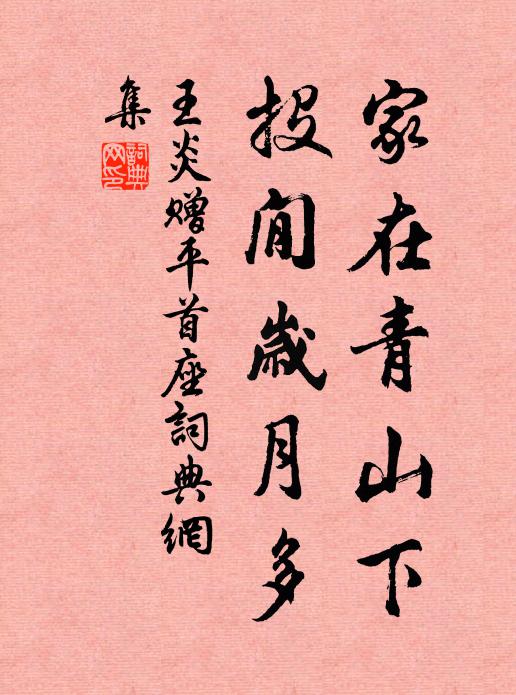 家在青山下
投閒歲月多
王炎贈平首座詞典網
集
詞典
网印